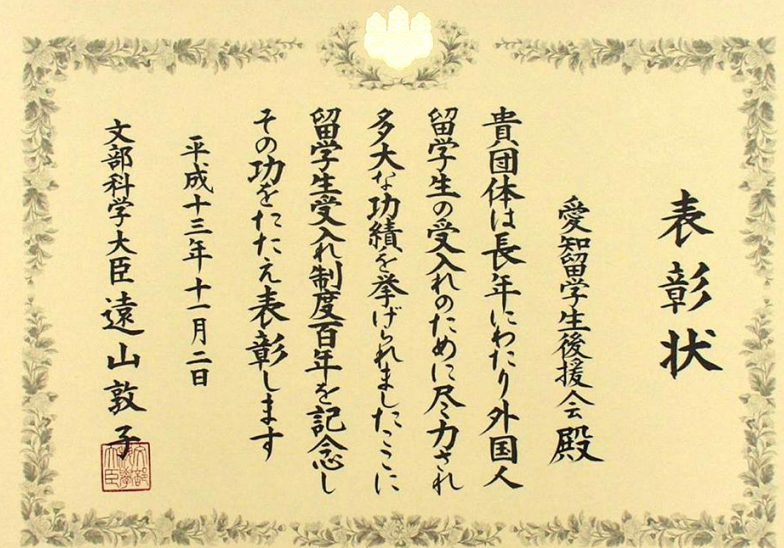 表彰状
愛知留学生後援会殿
貴団体は長年にわたり外国人
留学生の受入れのために尽力され
多大な功績を挙げられましたここに
留学生受入れ制度百年を記念し
その功をたたえ表彰します
平成十三年十一月二日
文部科学大臣 遠山敦子